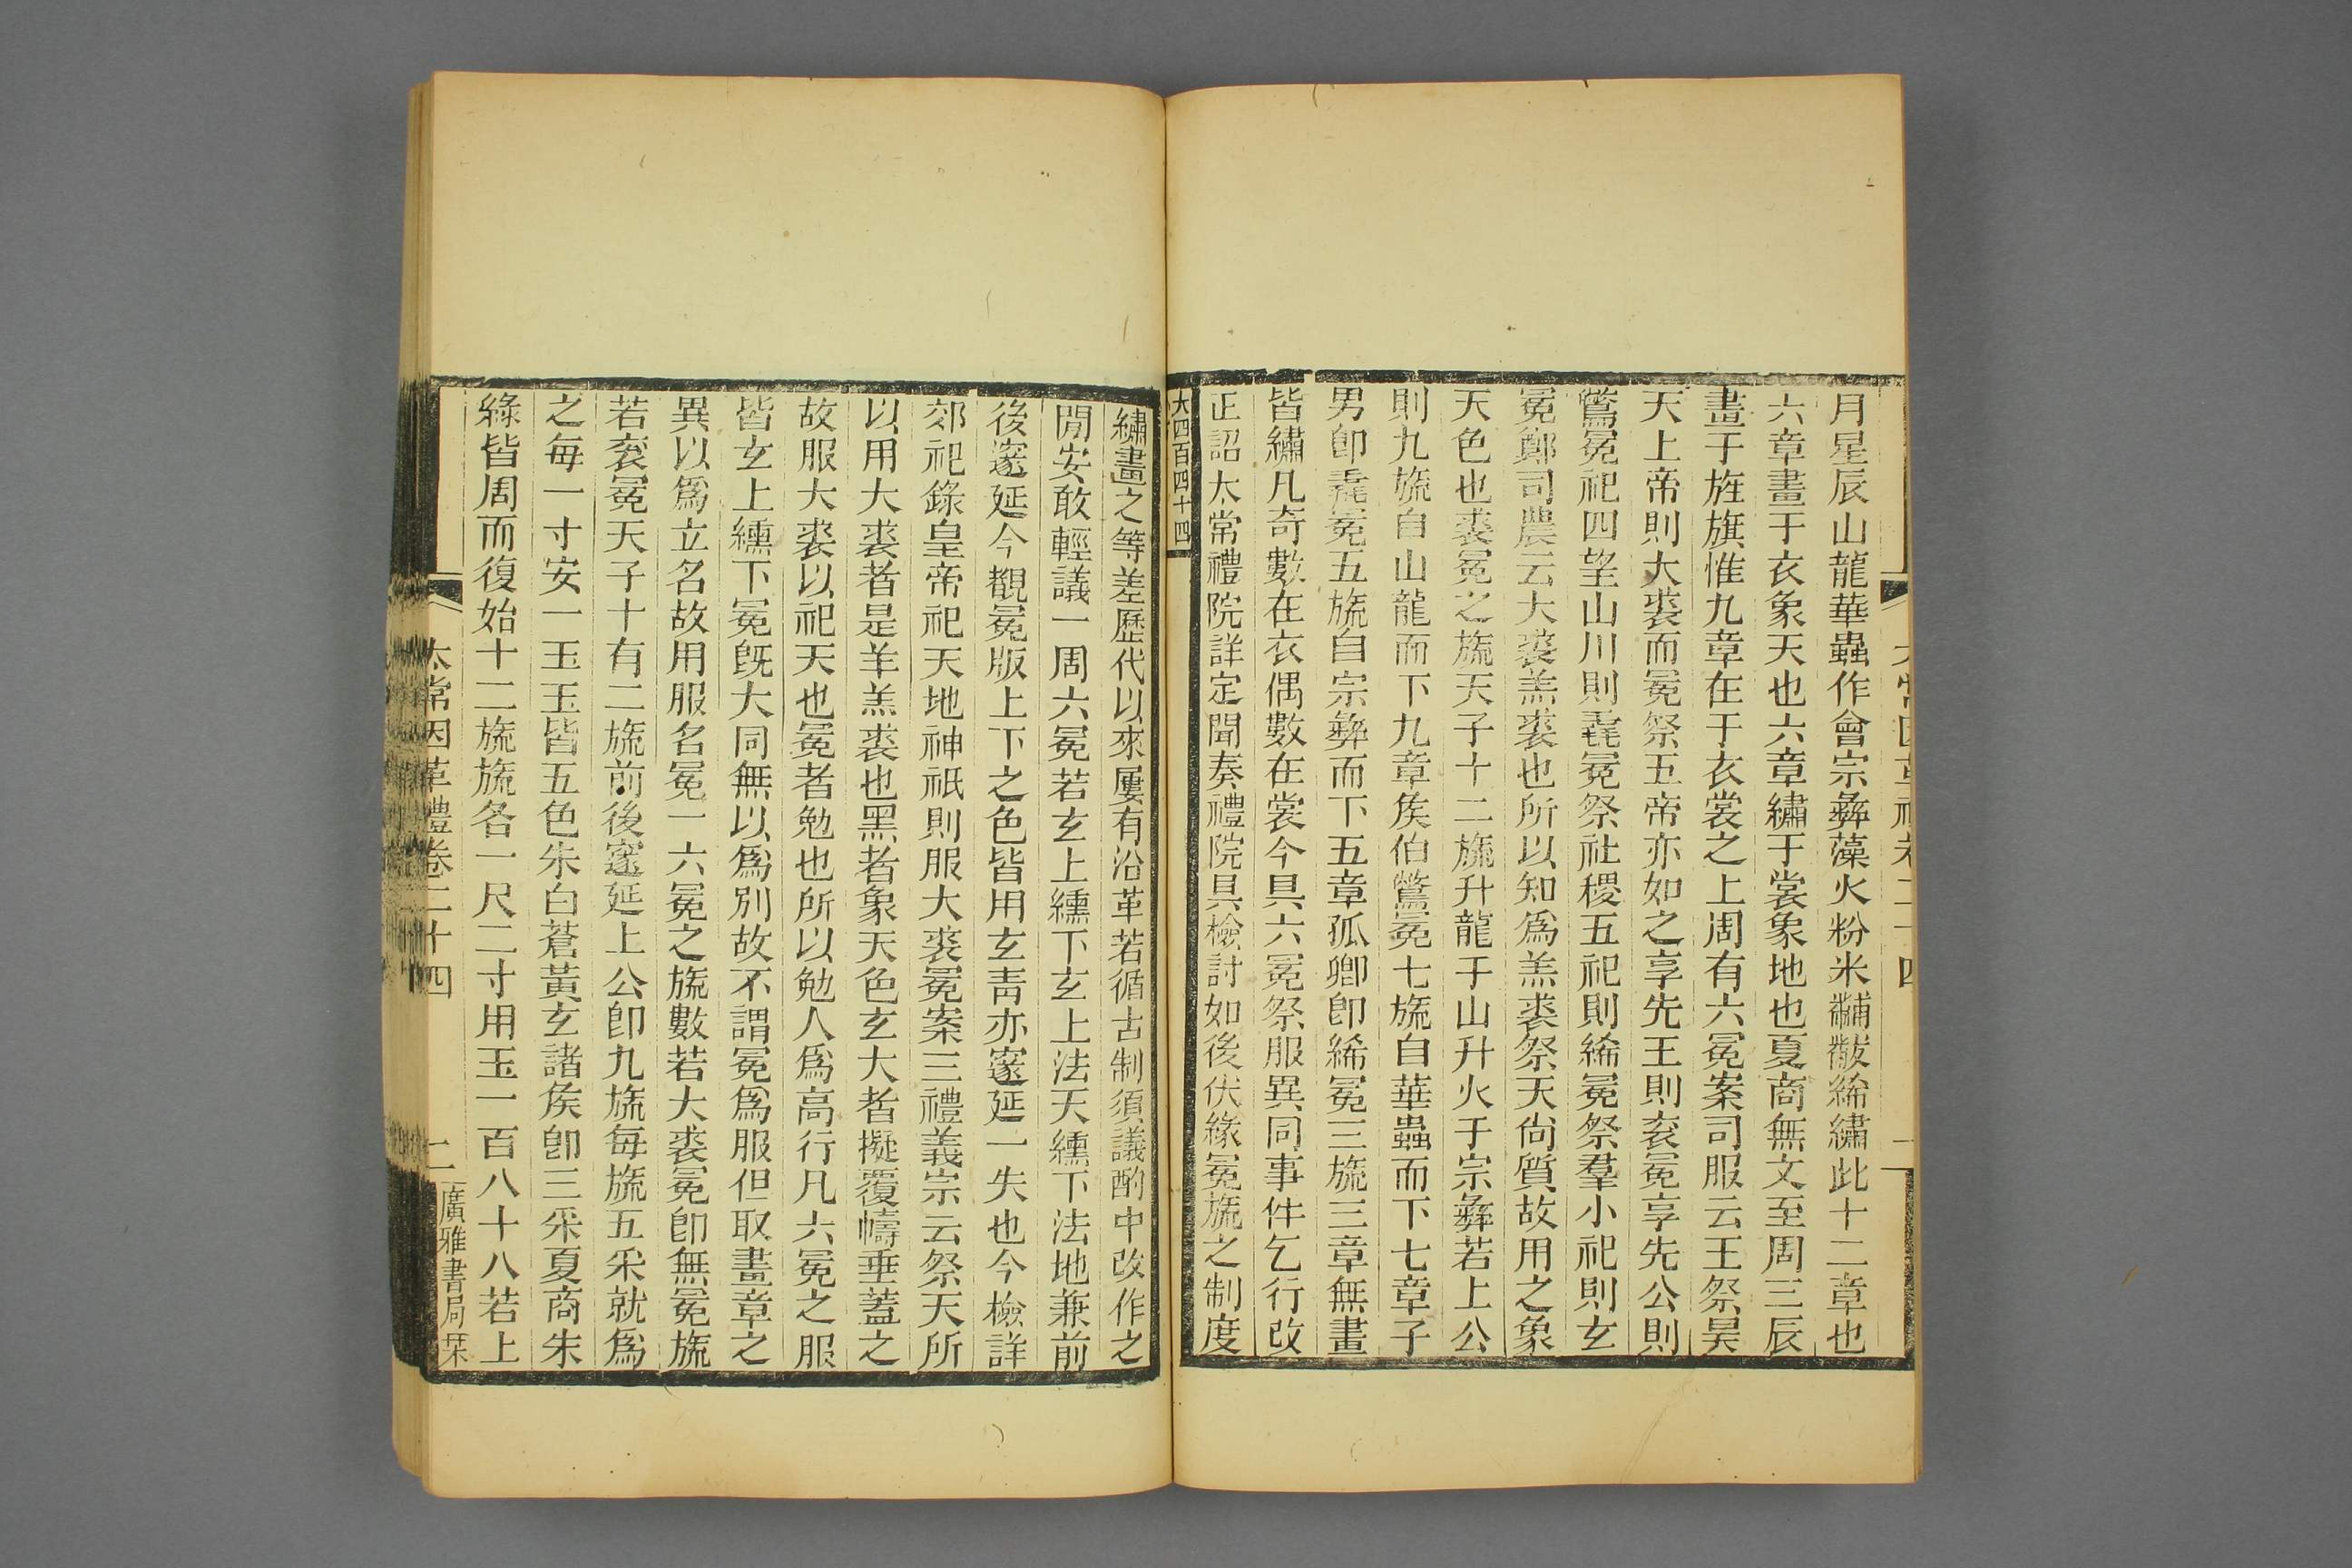 月星辰山龍華蟲作會宗彝藻火粉米黼黻絺繡此十二章也
六章畫于衣象天也六章繡于裳象地也夏商無文至周三辰
畫于旌旗惟九章在于衣裳之上周有六冕案司服云王祭昊
天上帝則大裘而冕祭五帝亦如之享先王則衮冕享先公則
鷩冕祀四望山川則毳冕祭社稷五祀則絺冕祭羣小祀則玄
冕鄭司農云大裘羔裘也所以知爲羔裘祭天尙質故用之象
天色也裘冕之旒天子十二旒升龍于山升火于宗彝若上公
則九旒自山龍而下九章矦伯鷩冕七旒自華蟲而下七章子
男卽毳冕五旒自宗彝而下五章孤卿卽絺冕三旒三章無畫
皆繡凡奇數在衣偶數在裳今具六冕祭服異同事件乞行改
正詔太常禮院詳定聞奏禮院具檢討如後伏緣冕旒之制度
大四百四十四
繡畫之等差歷代以來屢有沿革若循古制須議酌中改作之
閒安敢輕議一周六冕若玄上纁下玄上法天纁下法地兼前
後邃延今觀冕版上下之色皆用玄靑亦邃延一失也今檢詳
郊祀錄皇帝祀天地神祇則服大裘冕案三禮義宗云祭天所
以用大裘者是羊羔裘也黑者象天色玄大者擬覆幬垂蓋之
故服大裘以祀天也冕者勉也所以勉人爲高行凡六冕之服
皆玄上纁下冕旣大同無以爲別故不謂冕爲服但取畫章之
異以爲立名故用服名冕一六冕之旒數若大裘冕卽無冕旒
若衮冕天子十有二旒前後邃延上公卽九旒每旒五采就爲
之每一寸安一玉玉皆五色朱白蒼黃玄諸矦卽三采夏商朱
綠皆周而復始十二旒旒各一尺二寸用玉一百八十八若上
太常因革禮卷二十四 二 廣雅書局栞